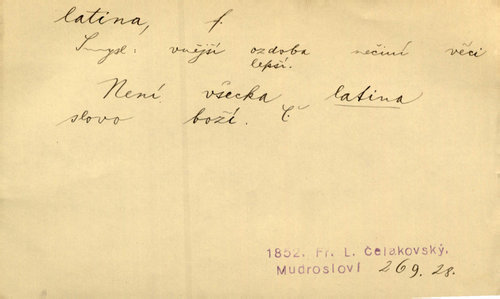 latina, f.
Smysl: vnější ozdoba nečiní věci
lepší.
Není všecka latina
slovo boží. Č
1852. Fr. L. Čelakovský.
Mudrosloví 269. 28.